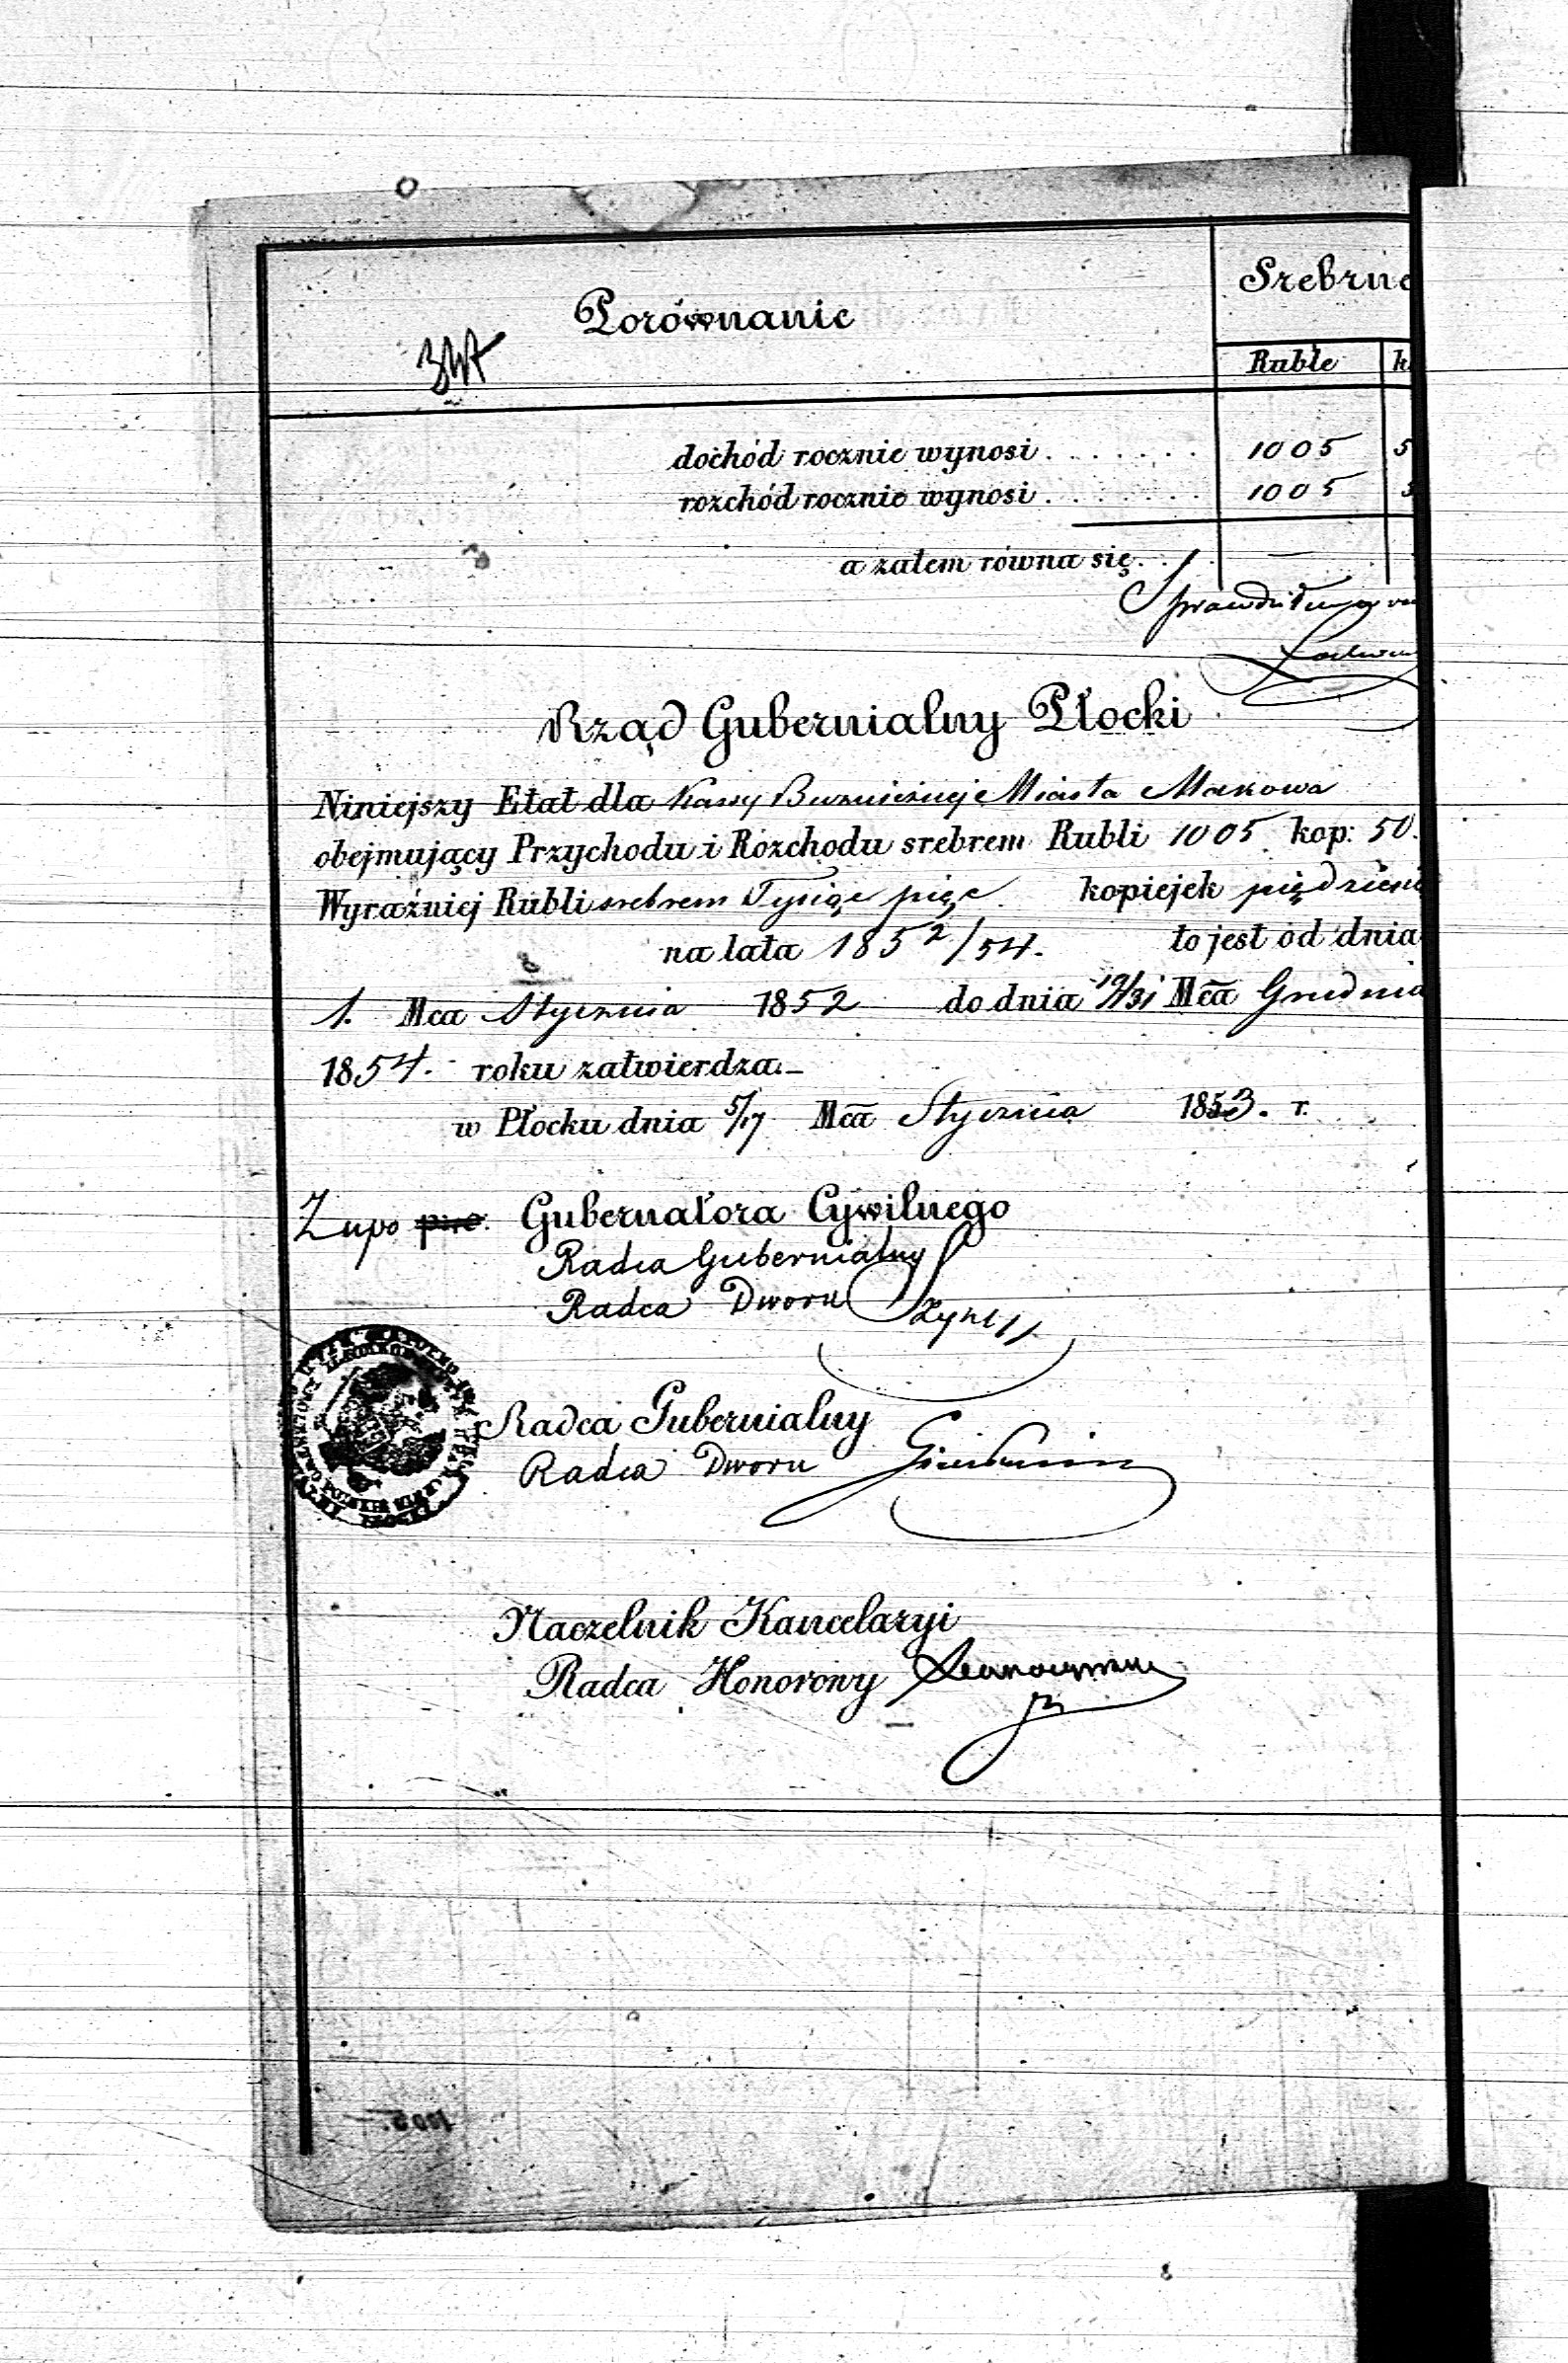 Porównanie
Srebrne
Ruble
dochód rocznie wynosi . . . . . . . 1005 5
rozchód rocznie wynosi . . . . . . . 1005 5
a zatem równa się . . . —
Rząd Gubernialny Płocki
Niniejszy Etat dla Kassy Bużniczney Miasta Makowa
obejmujący Przychodu i Rozchodu srebrem Rubli 1005 kop: 50.
Wyraźniej Rubli srebrem Tysiąc pięc. kopiejek
na lata 1852/54. to jest od dnia
1. Mca Stycznia 1852 do dnia 19/31 Mca Grudnia
1854. roku zatwierdza.—
w Płocku dnia 5/17 Mca Stycznia 1853. r.
Z upo Gubernatora Cywilnego
Radca Gubernialny
Radca Dworu
Radca Gubernialny
Radca Dworu
Naczelnik Kancelaryi
Radca Honorowy